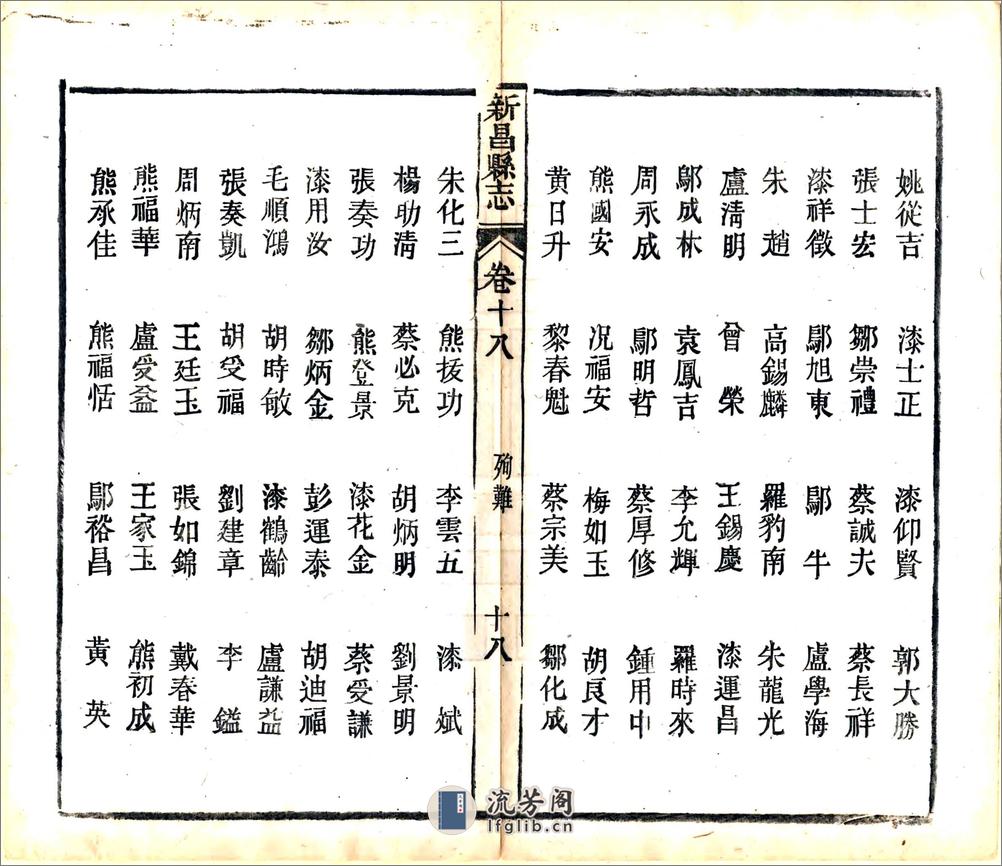 姚從吉 漆士正 漆仰賢 郭大勝
張士宏 鄒崇禮 蔡誠夫 蔡長祥
漆祥徵 鄢旭東 鄢牛 盧學海
朱趙 高錫麟 羅豹南 朱龍光
盧淸明 曾榮 王錫慶 漆運昌
鄔成林 袁鳳吉 李允輝 羅時來
周永成 鄢明哲 蔡厚修 鍾用中
熊國安 況福安 梅如玉 胡良才
黄日升 黎春魁 蔡宗美 鄒化成
新昌縣志 卷十八 殉難 十八
朱化三 熊援功 李雲五 漆斌
楊助淸 蔡必克 胡炳明 劉景明
張奏功 熊登景 漆花金 蔡受謙
漆用汝 鄒炳金 彭運泰 胡迪福
毛順鴻 胡時敏 漆鶴齡 盧謙益
張奏凱 胡受福 劉建章 李鎰
周炳南 王廷玉 張如錦 戴春華
熊福華 盧受益 王家玉 熊初成
熊承佳 熊福恬 鄢裕昌 黄英
流芳阁
lfglib.cn